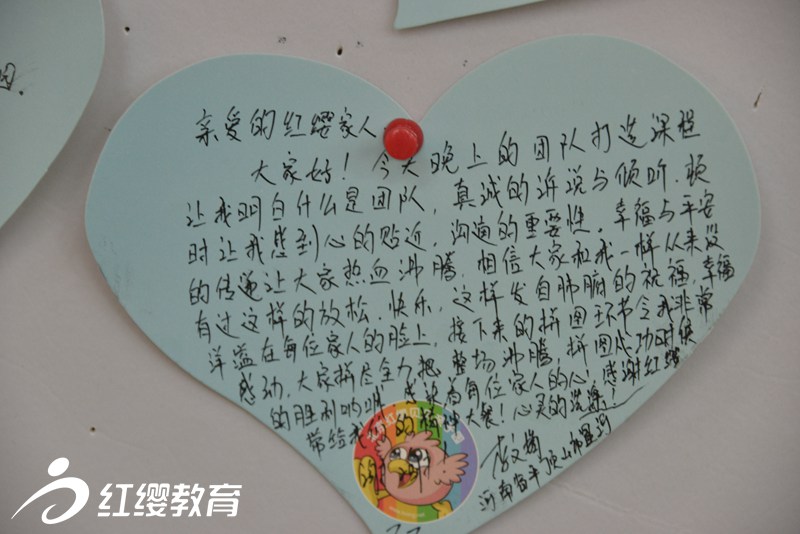 亲爱的红缨家人
大家好！今天晚上的团队打造课程
让我明白什么是团队，真诚的诉说与倾听，顿
时让我感到心的贴近，沟通的重要性，幸福与平安
的传递让大家热血沸腾，相信大家和我一样从来没
有过这样的放松、快乐，这样发自肺腑的祝福，幸福
洋溢在每位家人的脸上，接下来的拼图环节令我非常
感动，大家拼尽全力把整场沸腾，拼图成功时候
的胜利呐喊感染着每位家人的心！感谢红缨
带给我们的精神大餐！心灵的洗涤！
河南省平顶山
红缨教育